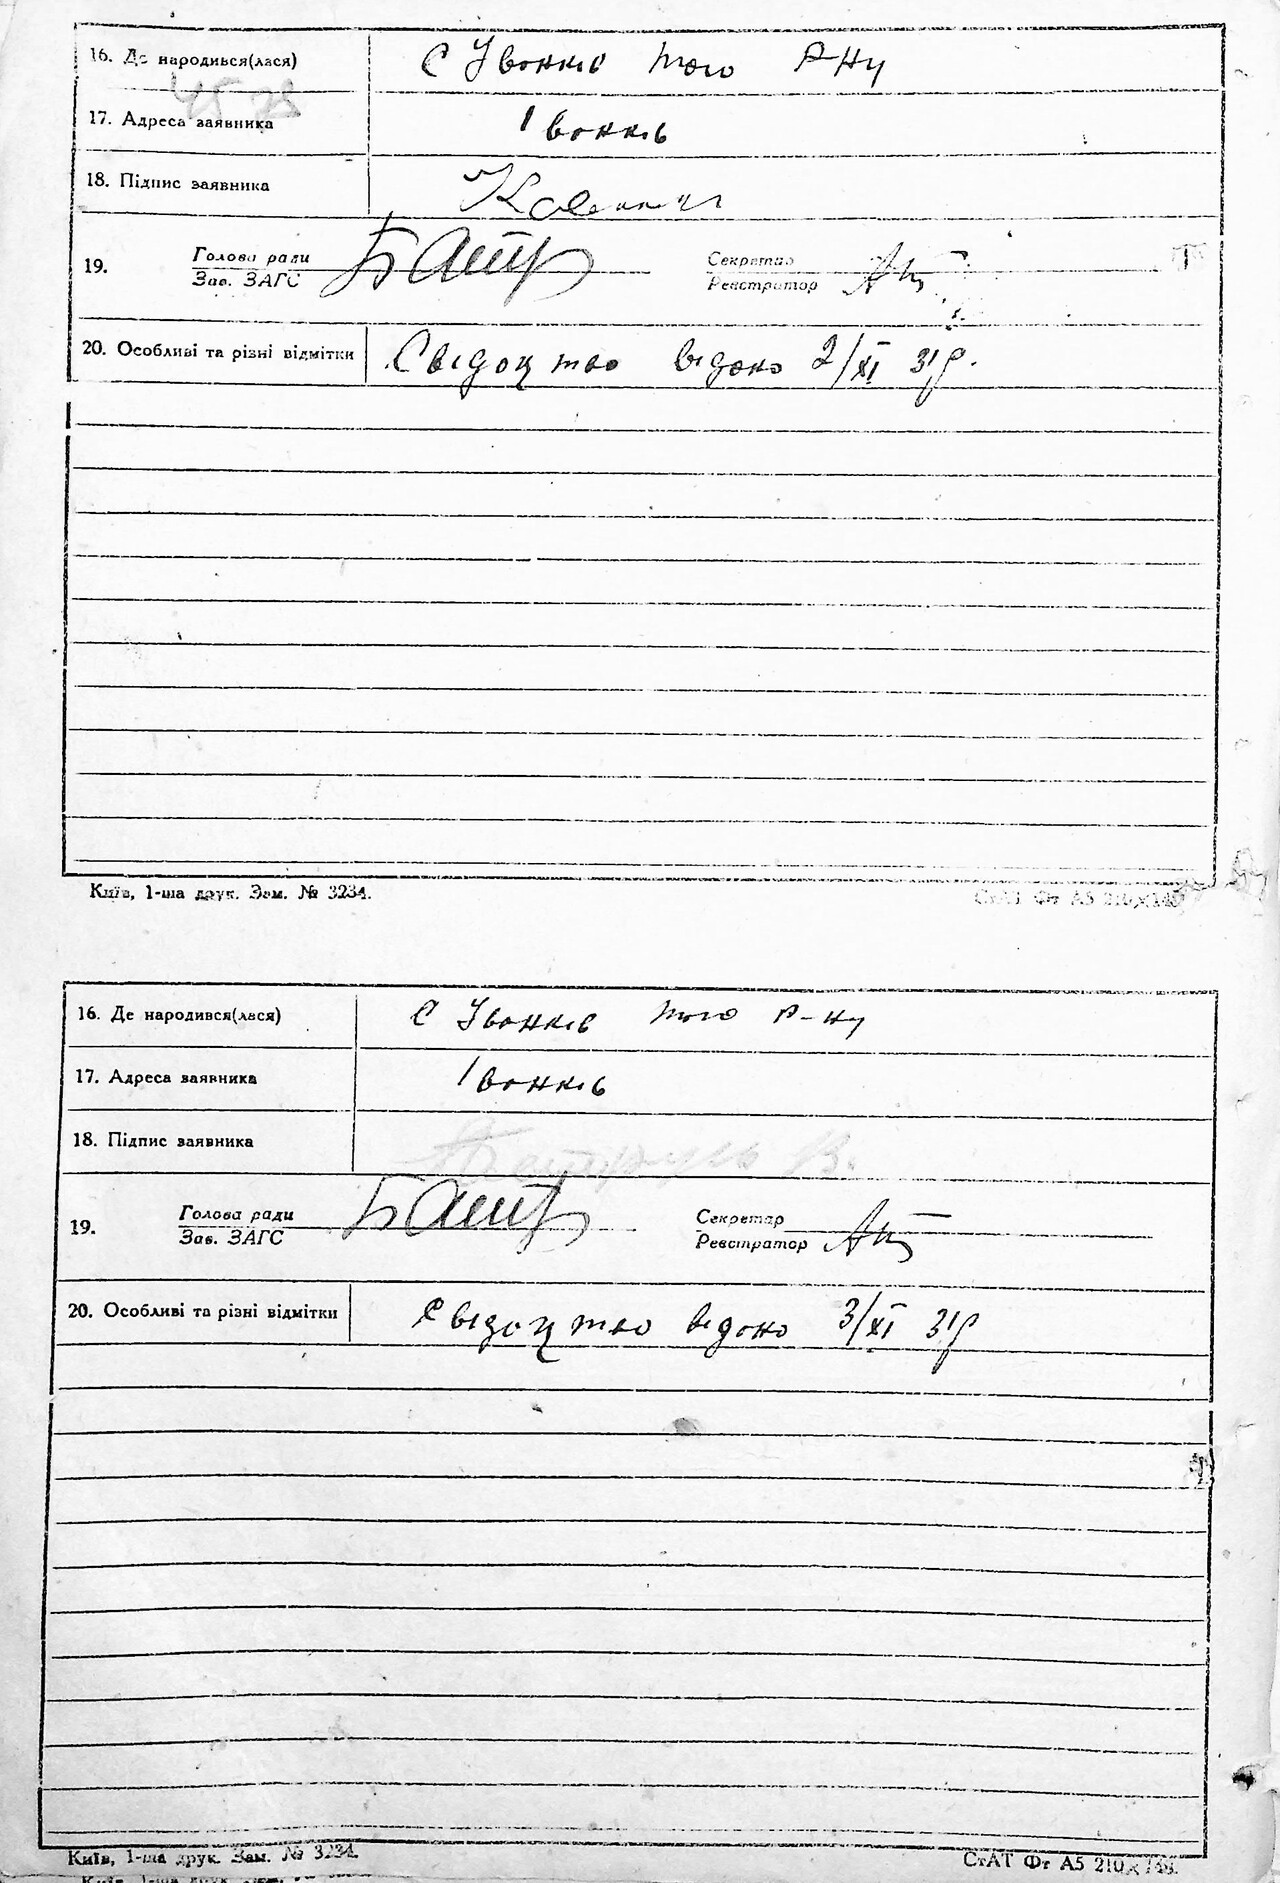 16. Де народився(лася) с Івонків того р-ну
17. Адреса заявника Івонків
18. Підпис заявника
19. Голова ради Секретар
Зав. ЗАГС Реєстратор
20. Особливі та різні відмітки Свідоцтво видоно 2/XI 31р.
Київ, 1-ша друк. Зам. № 3234.
СтАТ Фт А5 210×148
16. Де народився(лася) с Івонків того р-ну
17. Адреса заявника Івонків
18. Підпис заявника
19. Голова ради Секретар
Зав. ЗАГС Реєстратор
20. Особливі та різні відмітки Свідоцтво видоно 3/XI 31р
Київ, 1-ша друк. Зам. № 3234.
СтАТ Фт А5 210×148.